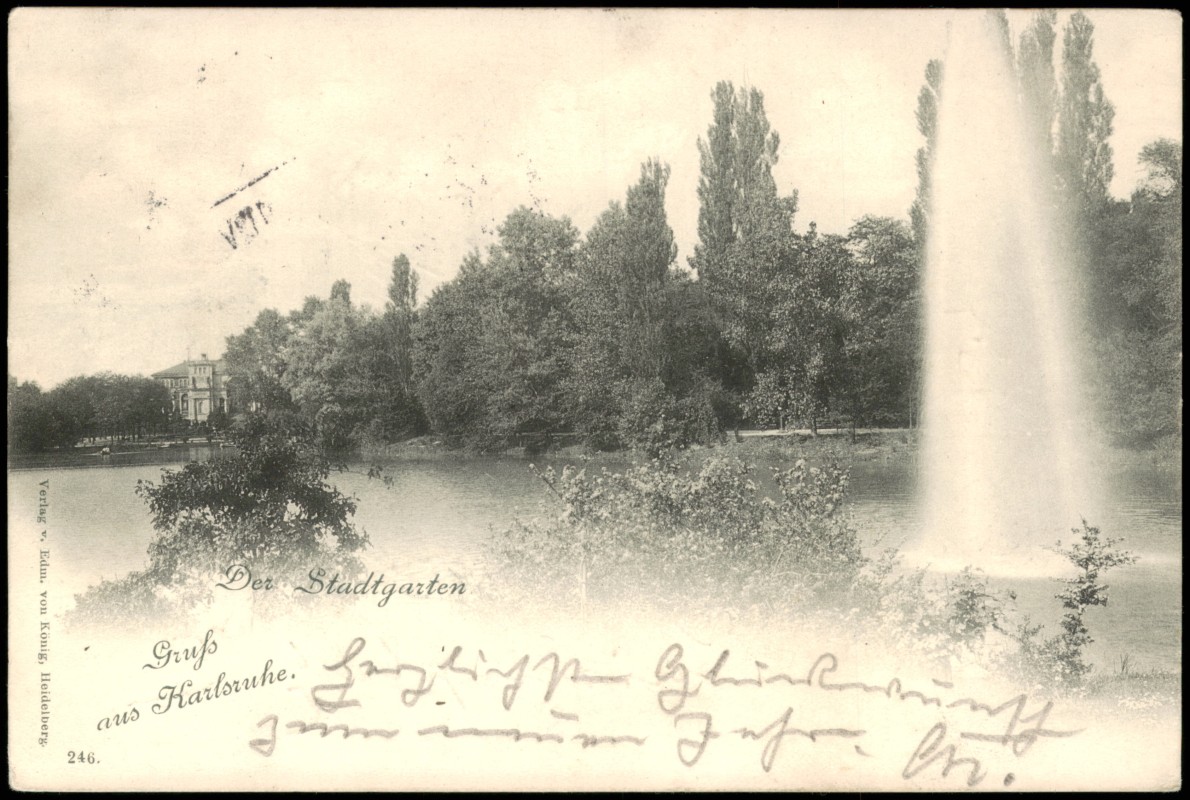 VIII
Der Stadtgarten
Gruſs
aus Karlsruhe.
Herzlichsten Glückwunsch
zum neuen Jahr.
Verlag v. Edm. von König, Heidelberg.
246.